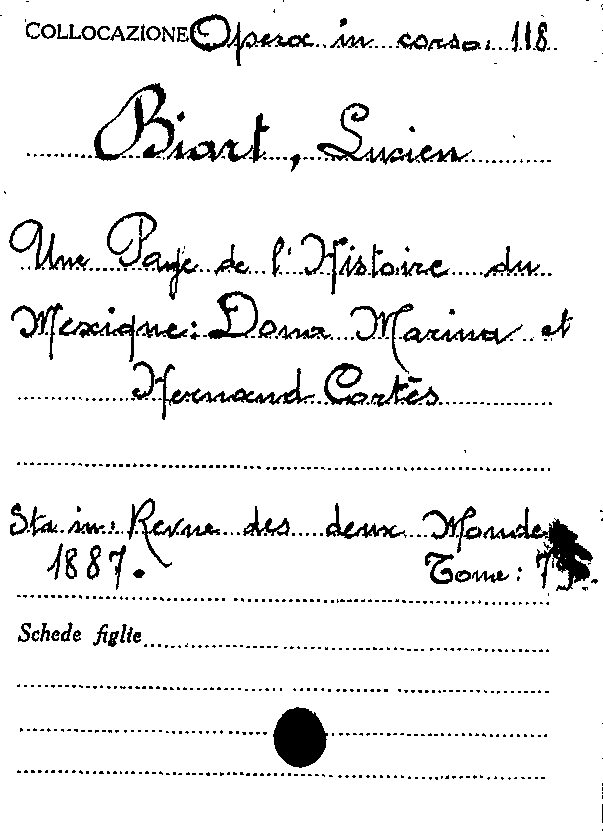 COLLOCAZIONE Opera in corso: 118
Biart, Lucien
Une Page de l'Histoire du
Mexique: Dona Marina et
Hernand Cortès
Sta in: Revue des deux Monde
1887. Tome:
Schede figlie